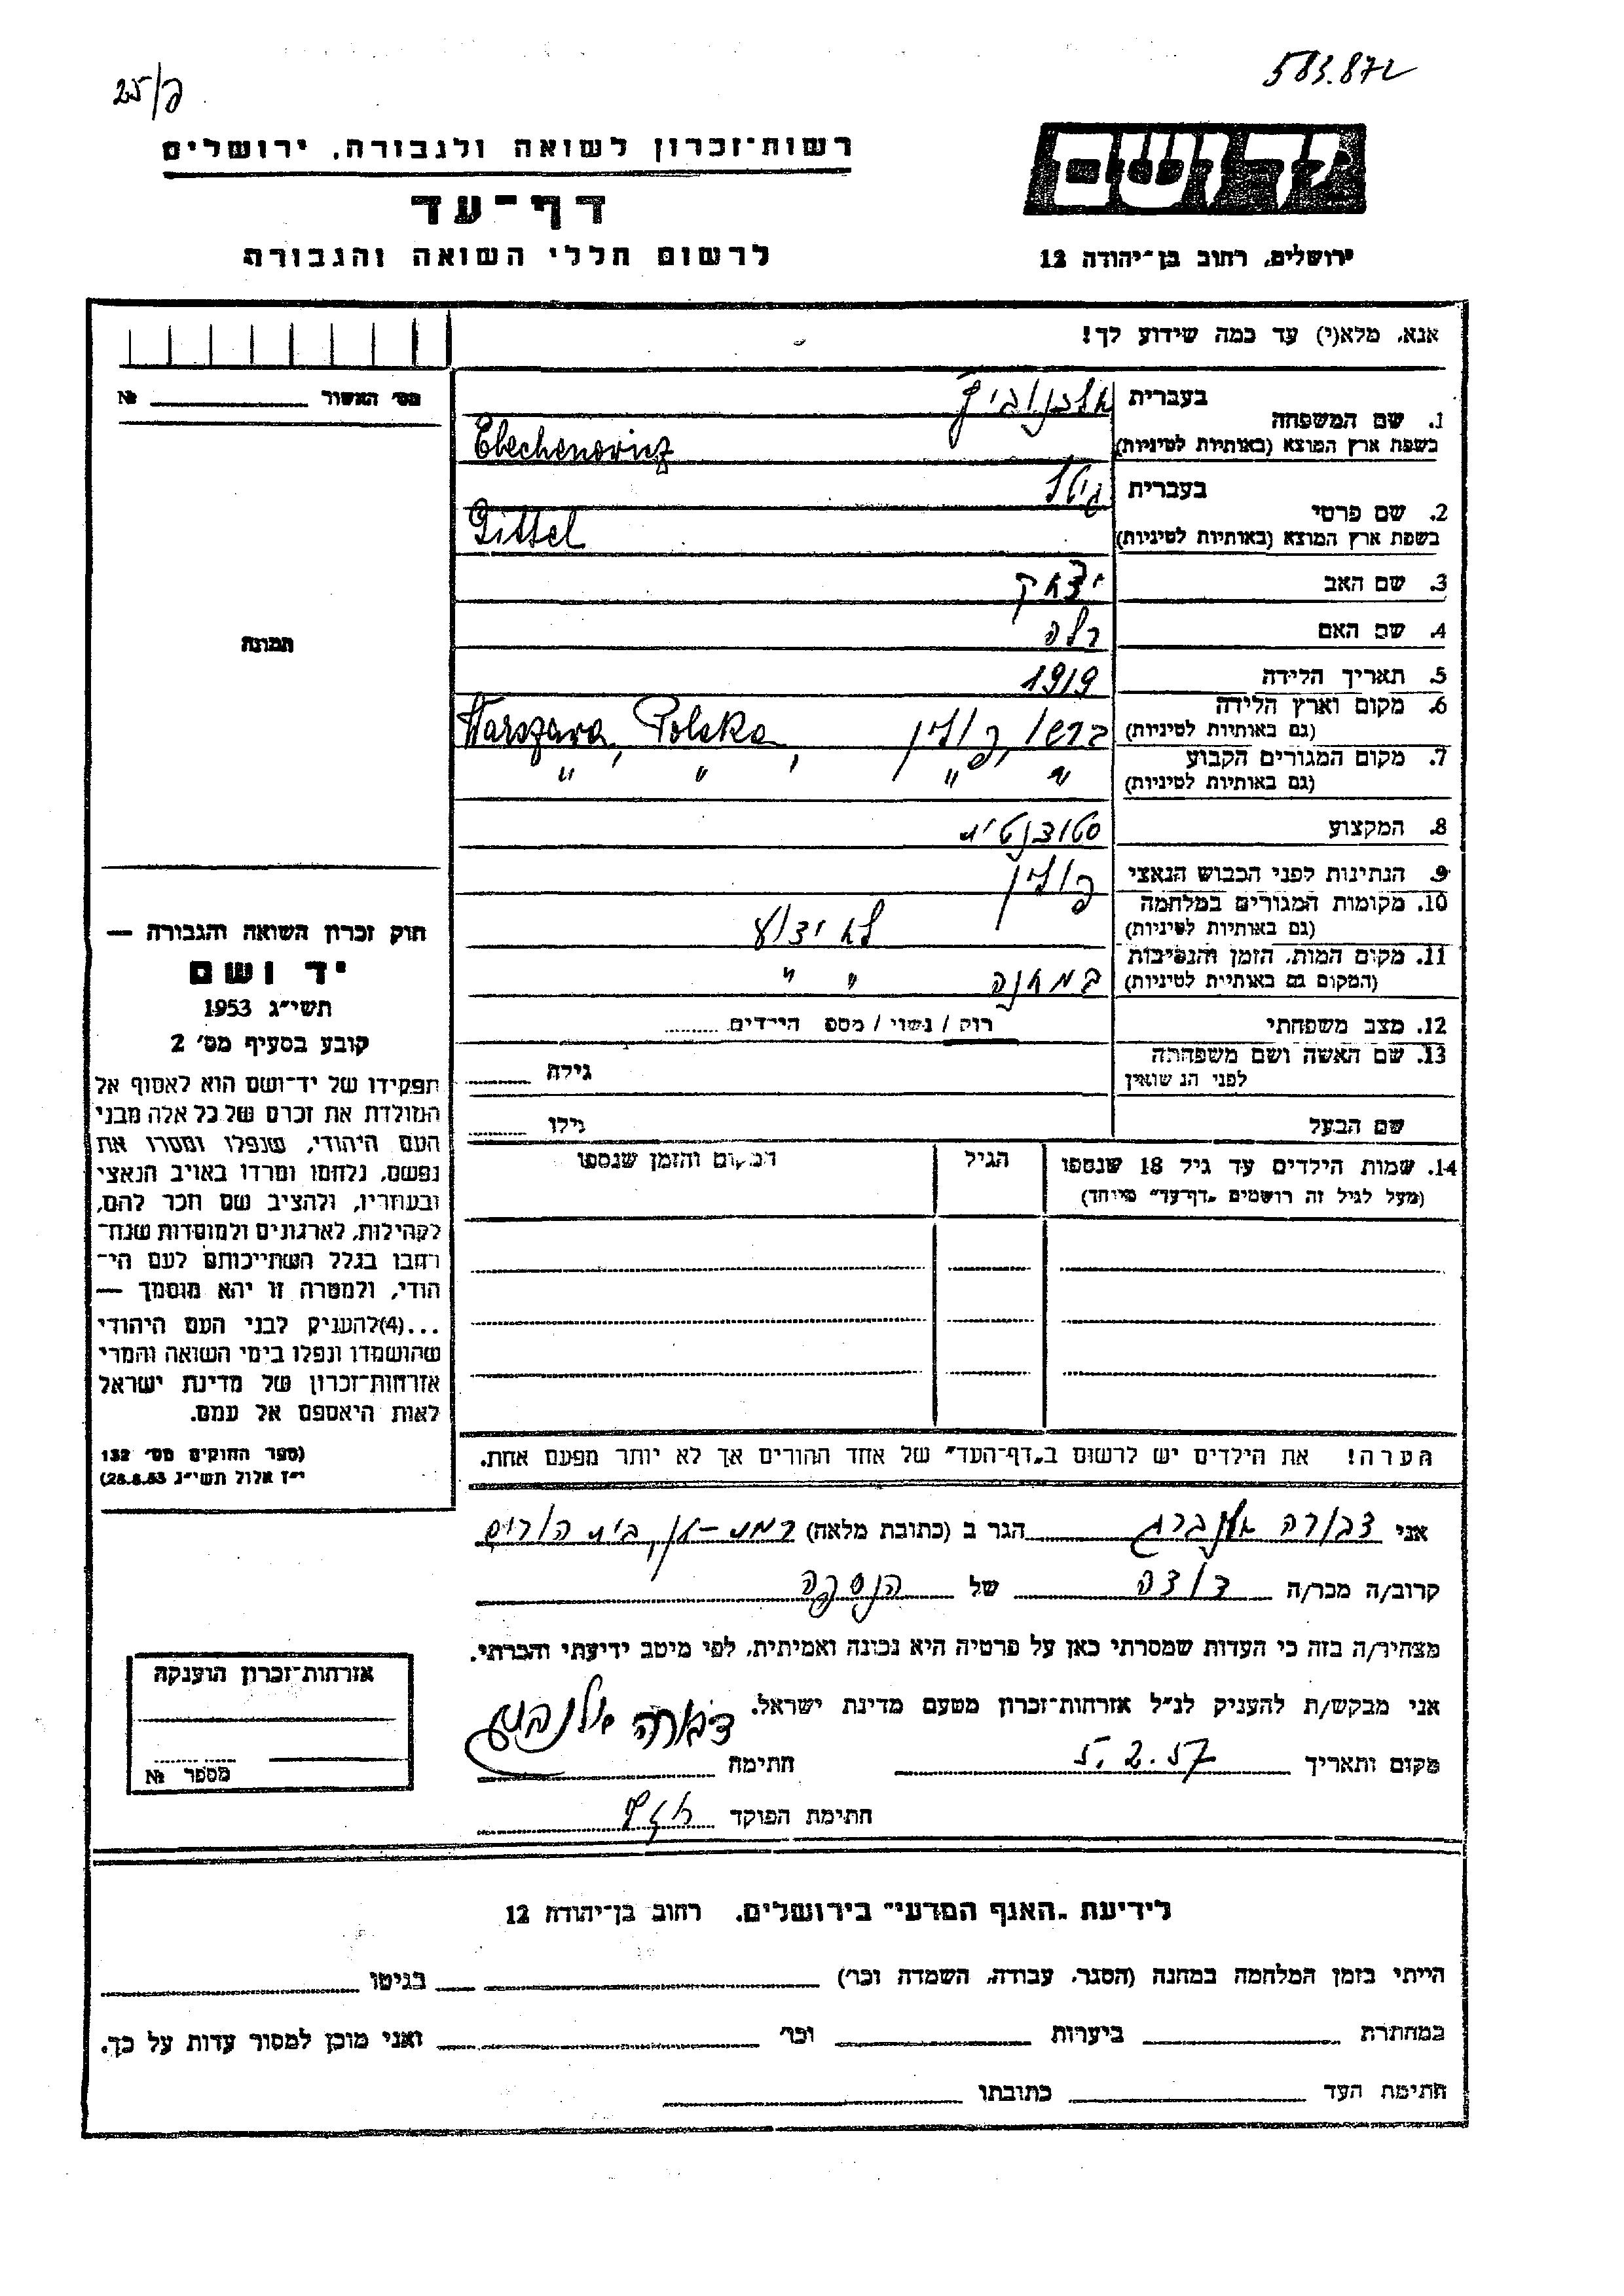 583.872
25/פ
יד ושם
רשות־זכרון לשואה ולגבורה, ירושלים
דף־עד
ירושלים, רחוב בן־יהודה 12
לרשום חללי השואה והגבורה
אנא, מלא(י) עד כמה שידוע לך!
מס׳ האשור № 
1. שם המשפחה
בעברית
בשפת ארץ המוצא (באותיות לטיניות) Elechenovicz
2. שם פרטי
בעברית גיטל
בשפת ארץ המוצא (באותיות לטיניות) Gittel
3. שם האב יצחק
4. שם האם
תמונה
5. תאריך הלידה 1919
6. מקום וארץ הלידה ורשו, פולין, Warszawa, Polska
(גם באותיות לטיניות)
7. מקום המגורים הקבוע " " " "
(גם באותיות לטיניות)
8. המקצוע סטודנטית
9. הנתינות לפני הכבוש הנאצי פולין
10. מקומות המגורים במלחמה לא ידוע
(גם באותיות לטיניות)
11. מקום המות, הזמן והנסיבות במחנה " "
(המקום גם באותיות לטיניות)
12. מצב משפחתי רוק / נשוי / מספ הילדים
13. שם האשה ושם משפחתה
לפני הנשואין גילה
שם הבעל גילו
14. שמות הילדים עד גיל 18 שנספו הגיל המקום והזמן שנספו
(מעל לגיל זה רושמים „דף־עד״ מיוחד)
הערה! את הילדים יש לרשום ב„דף־העד״ של אחד ההורים אך לא יותר מפעם אחת.
חוק זכרון השואה והגבורה —
יד ושם
תשי״ג 1953
קובע בסעיף מס׳ 2
תפקידו של יד־ושם הוא לאסוף אל
המולדת את זכרם של כל אלה מבני
העם היהודי, שנפלו ומסרו את
נפשם, נלחמו ומרדו באויב הנאצי
ובעוזריו, ולהציב שם וזכר להם,
לקהילות, לארגונים ולמוסדות שנח־
רבו בגלל השתייכותם לעם הי־
הודי, ולמטרה זו יהא מוסמך —
...(4)להעניק לבני העם היהודי
שהושמדו ונפלו בימי השואה והמרי
אזרחות־זכרון של מדינת ישראל
לאות היאספם אל עמם.
(ספר החוקים מס׳ 132
י״ז אלול תשי״ג 28.8.53)
אני דבורה הגר ב (כתובת מלאה) רמת-גן, בית הורים
קרוב/ה מכר/ה דודה של הנספה
מצהיר/ה בזה כי העדות שמסרתי כאן על פרטיה היא נכונה ואמיתית, לפי מיטב ידיעתי והכרתי.
אני מבקש/ת להעניק לנ״ל אזרחות־זכרון מטעם מדינת ישראל.
מקום ותאריך 5.2.57 חתימה
חתימת הפוקד
אזרחות־זכרון הוענקה
מספר №
לידיעת „האגף המדעי״ בירושלים, רחוב בן־יהודה 12
הייתי בזמן המלחמה במחנה (הסגר, עבודה, השמדה וכו׳) בגיטו
במחתרת ביערות וכו׳ ואני מוכן למסור עדות על כך.
חתימת העד כתובתו